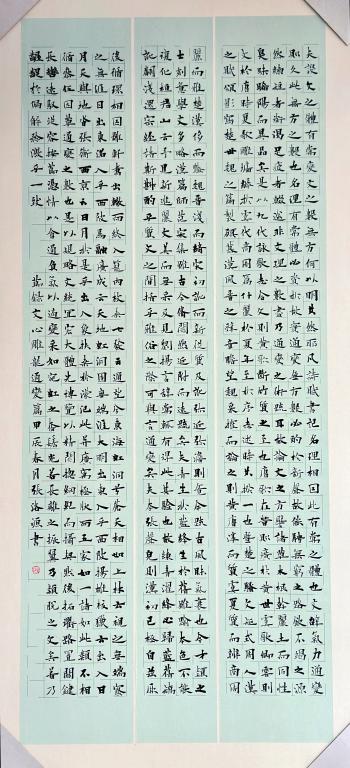 夫設文之體有常變文之數無方何以明其然耶凡詩賦書記名理相因此有常之體也文辭氣力通變
則久此無方之數也名理有常體必資於故實通變無方數必酌於新聲故能騁無窮之路飲不竭之源
然綆短者銜渴足疲者輟塗非文理之數盡乃通變之術疏耳故論文之方譬諸草木根幹麗土而同性
臭味晞陽而異品矣是以九代詠歌志合文則黃歌斷竹質之至也唐歌在昔則廣於黃世虞歌卿雲則
文於唐時夏歌雕牆縟於虞代商周篇什麗於夏年至於序志述時其揆一也暨楚之騷文矩式周人漢
之賦頌影寫楚世魏之篇製顧慕漢風晉之辭章瞻望魏采搉而論之則黃唐淳而質虞夏質而辨商周
麗而雅楚漢侈而艷魏晉淺而綺宋初訛而新從質及訛彌近彌澹何則競今疏古風昧氣衰也今才穎之
士刻意學文多略漢篇師範宋集雖古今備閱然近附而遠疏矣夫青生於藍絳生於蒨雖踰本色不能
復化桓君山云予見新進麗文美而無採及見劉揚言辭常輒有得此其驗也故練青濯絳必歸藍蒨矯
訛翻淺還宗經誥斯斟酌乎質文之間而隱括乎雅俗之際可與言通變矣夫夸張聲貌則漢初已極自茲厥
後循環相因雖軒翥出轍而終入籠內枚乘七發云通望兮東海虹洞兮蒼天相如上林云視之無端察
之無涯日出東沼入乎西陂馬融廣成云天地虹洞固無端涯大明出東月生西陂揚雄校獵云出入日
月天與地沓張衡西京云日月於是乎出入象扶桑於濛汜此並廣寓極狀而五家如一諸如此類莫不相
循參伍因革通變之數也是以規略文統宜宏大體先博覽以精閱總綱紀而攝契然後拓衢路置關鍵
長轡遠馭從容按節憑情以會通負氣以適變采如宛虹之奮鬐光若長離之振翼乃穎脫之文矣若乃
齷齪於偏解矜激乎一致 節錄文心雕龍通變篇甲辰春月張洛源書